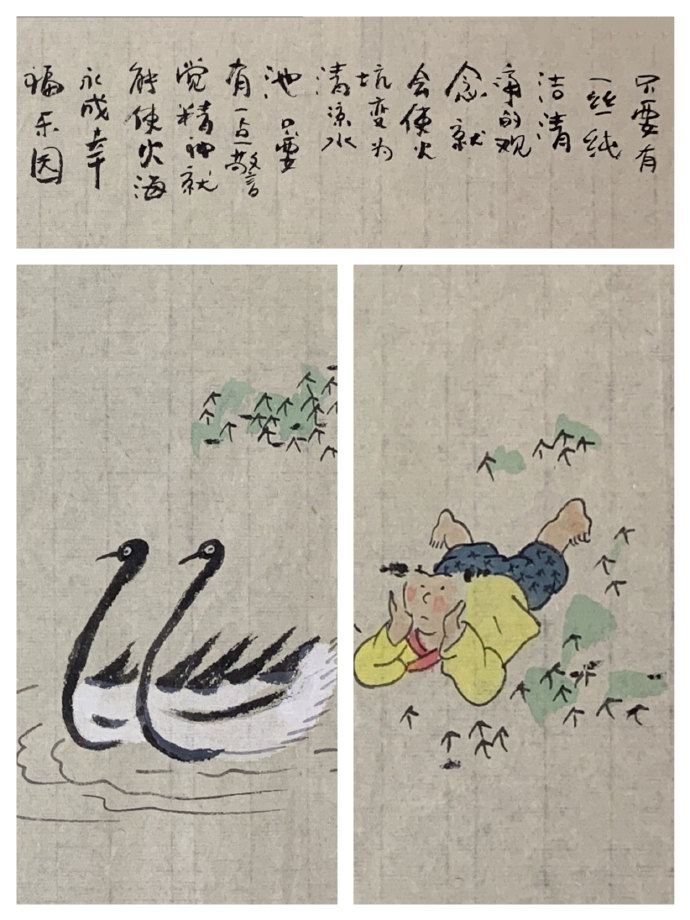 只要有
一丝纯
洁清
净的观
念就
会使火
坑变为
清凉水
池 只要
有一点警
觉精神就
能使火海
永成幸
福乐园